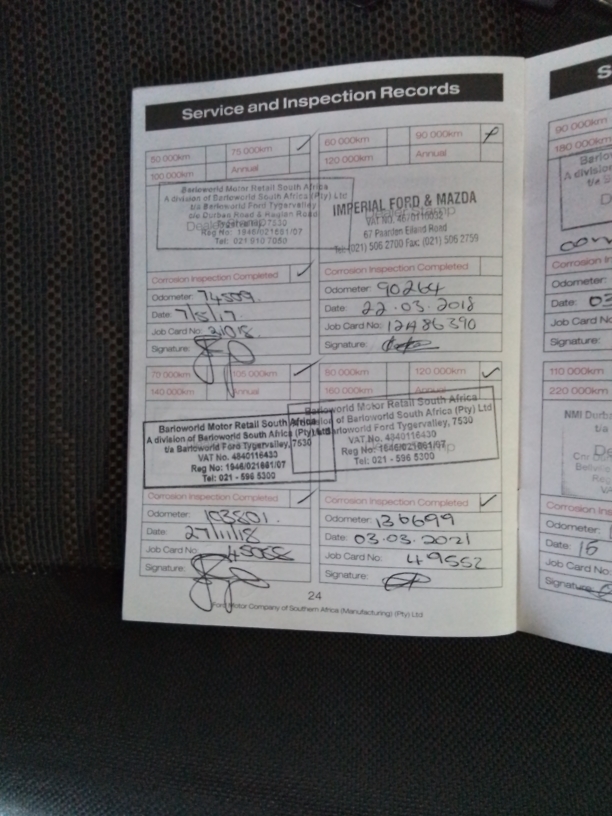 Service and Inspection Records
50 000km 75 000km
100 000km Annual
Barloworld Motor Retail South Africa
A division of Barloworld South Africa (Pty) Ltd
t/a Barloworld Ford Tygervalley
Reg No: 1946/021661/07
Tel: 021 910 7050
Corrosion Inspection Completed
Odometer: 74509
Date: 7/5/17
Job Card No: 31018
Signature:
60 000km 90 000km
120 000km Annual
IMPERIAL FORD & MAZDA
VAT NO. 4670116032
67 Paarden Eiland Road
Tel: (021) 506 2700 Fax: (021) 506 2759
Corrosion Inspection Completed
Odometer: 90264
Date: 22.03.2018
Job Card No: 12A86390
Signature:
70 000km 105 000km
140 000km Annual
Barloworld Motor Retail South Africa
A division of Barloworld South Africa (Pty) Ltd
t/a Barloworld Ford Tygervalley, 7530
VAT No. 4840116433
Reg No: 1946/021661/07
Tel: 021 - 596 5300
Corrosion Inspection Completed
Odometer: 103501
Date: 27/11/18
Job Card No: 45066
Signature:
80 000km 120 000km
160 000km Annual
Barloworld Motor Retail South Africa
division of Barloworld South Africa (Pty) Ltd
Barloworld Ford Tygervalley, 7530
VAT No. 4840116430
Reg No: 1946/021661/07
Tel: 021 - 596 5300
Corrosion Inspection Completed
Odometer: 136699
Date: 03.03.2021
Job Card No: 49552
Signature:
24
Ford Motor Company of Southern Africa (Manufacturing) (Pty) Ltd
90 000km
180 000km
A division
t/a B
Corrosion In
Odometer:
Date: 03
Job Card No
Signature:
110 000
220 000km
NMI Durba
t/a
Corrosion Ins
Odometer:
Date: 16
Job Card No:
Signature